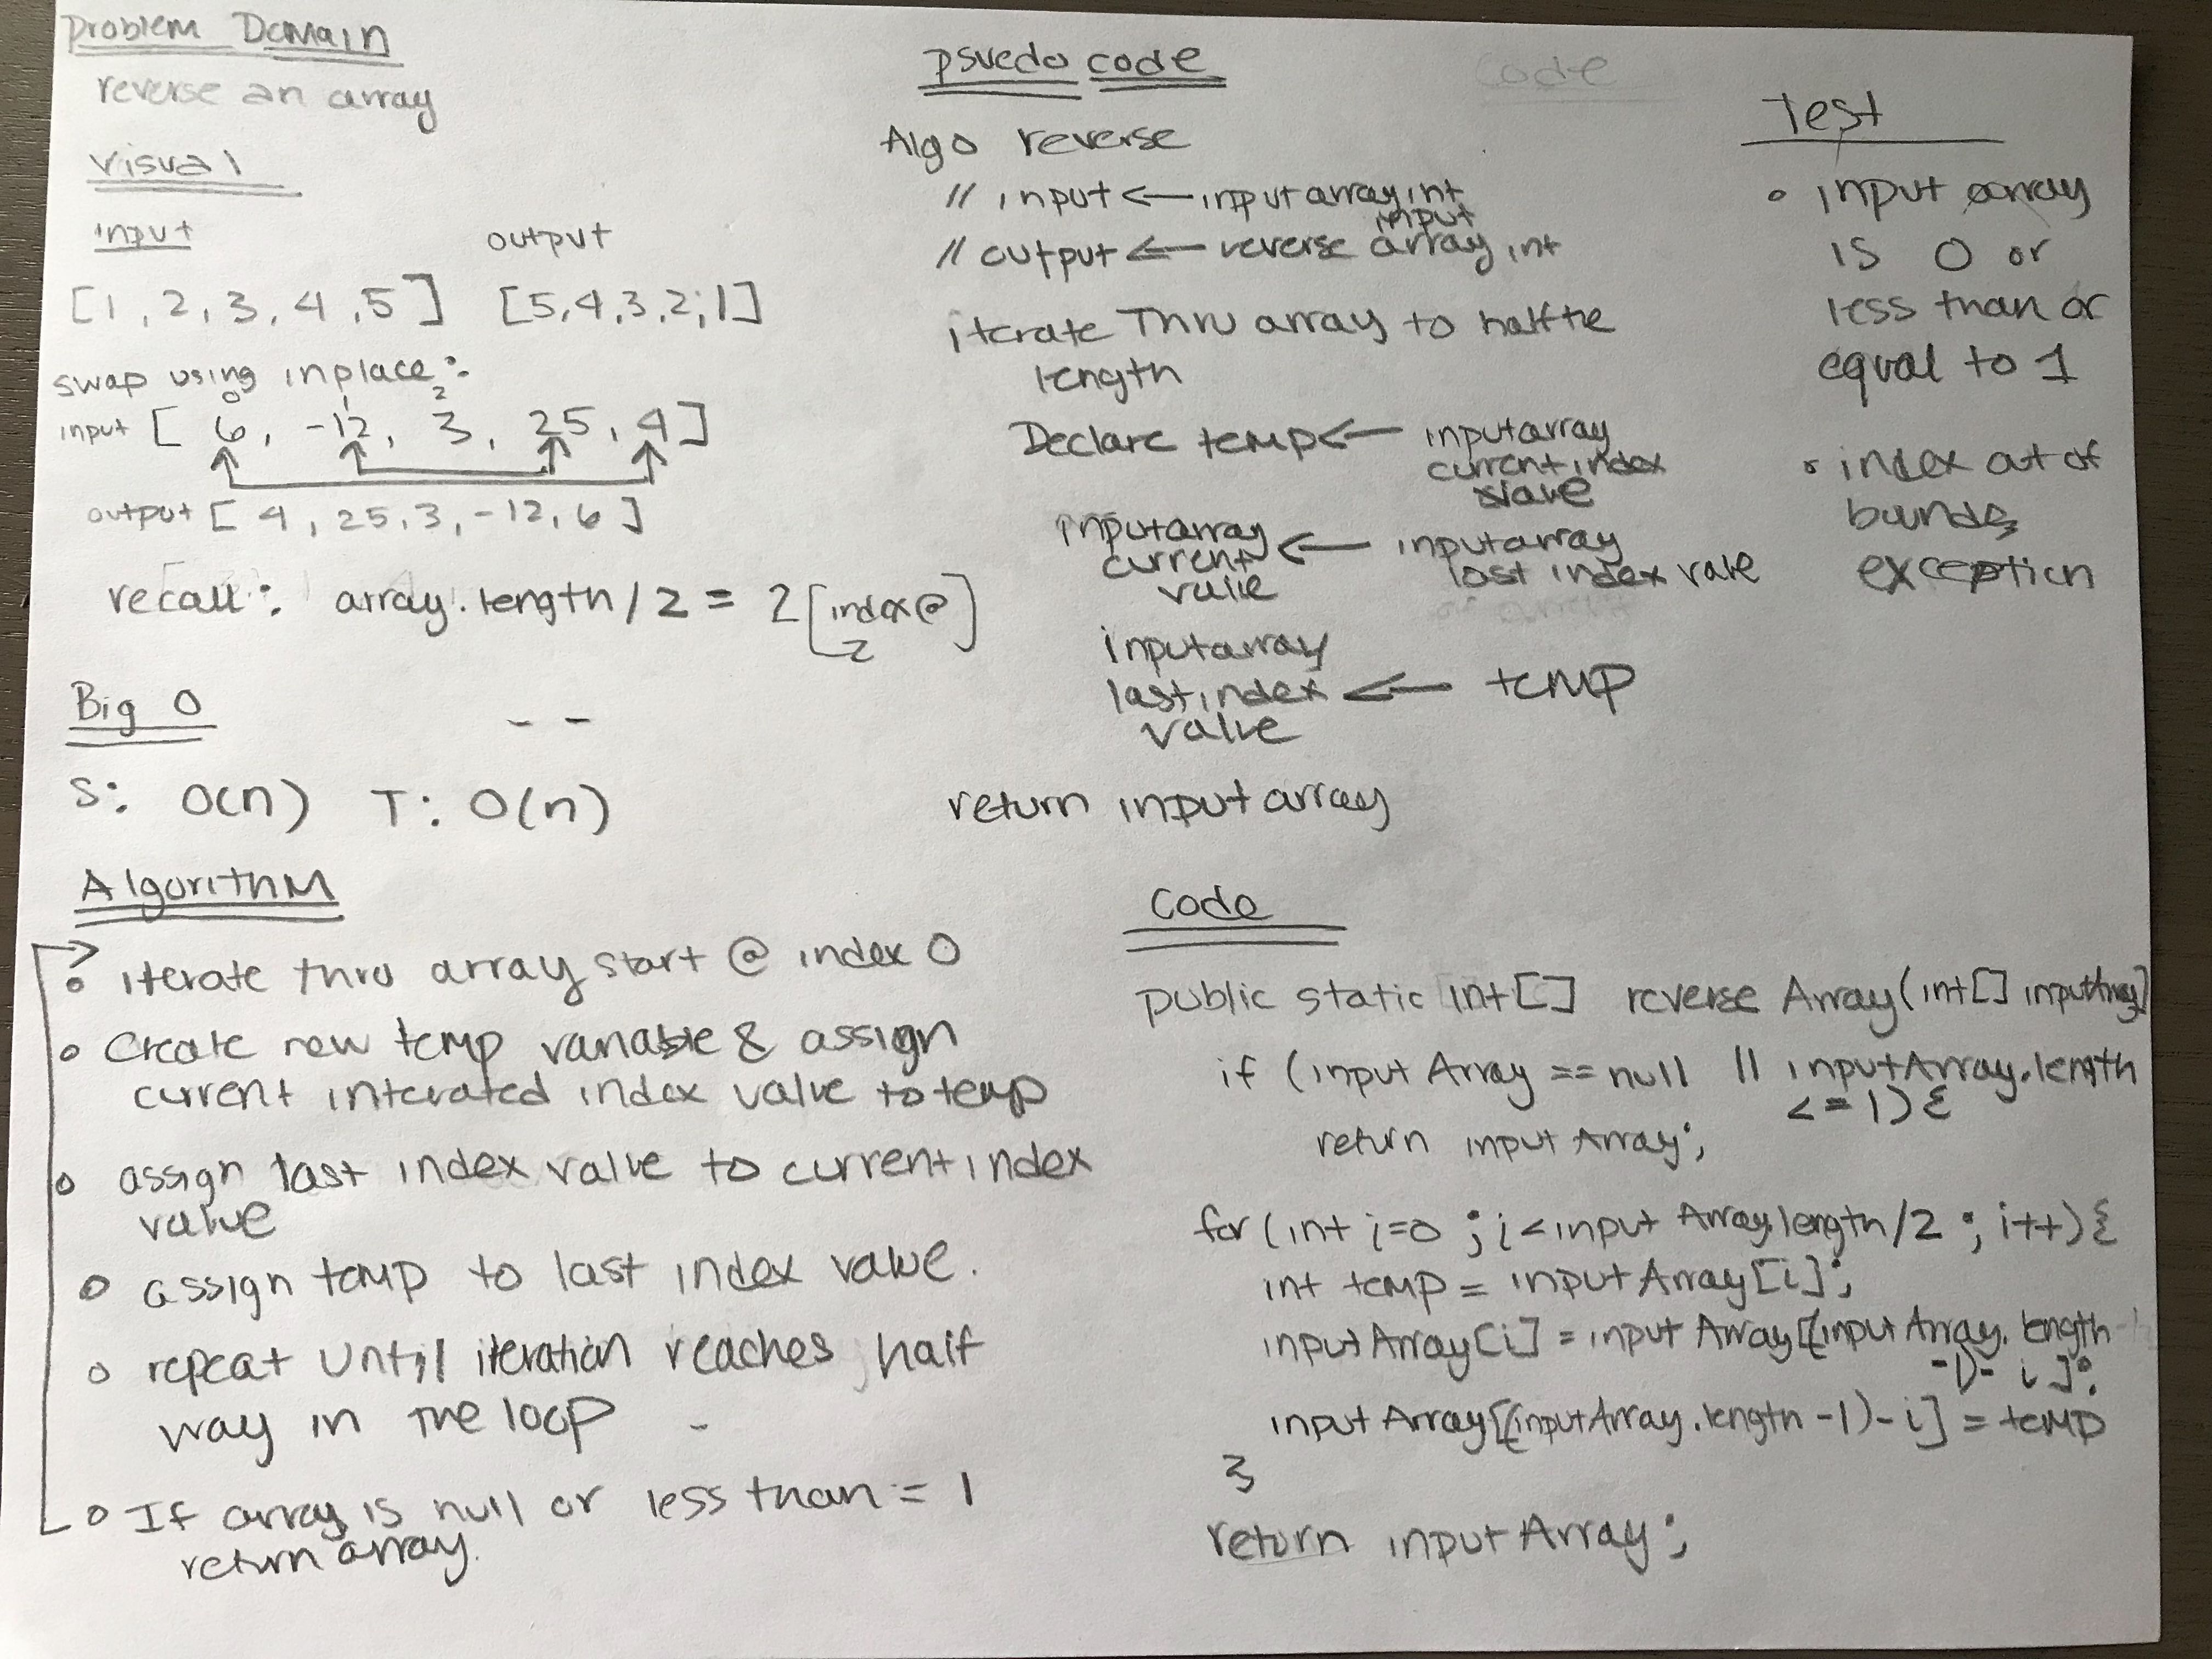 Problem Domain
reverse an array
Visual
input output
[1, 2, 3, 4, 5] [5,4,3,2,1]
swap using inplace:
0 1 2
input [ 6, -12, 3, 25, 4 ]
output [ 4, 25, 3, -12, 6 ]
recall: array.length/2 = 2 [index @
2]
Big O
S: O(n) T: O(n)
Algorithm
• iterate thru array start @ index 0
• Create new temp variable & assign
current interated index value to temp
• assign last index value to current index
value
• assign temp to last index value.
• repeat until iteration reaches half
way in the loop
• If array is null or less than = 1
return array.
psuedo code
Algo reverse
// input <— input array int
input
// output <— reverse array int
iterate Thru array to half the
length
Declare temp <— inputarray
current index
value
inputarray
current
value <— inputarray
last index value
inputarray
last index
value <— temp
return input array
Code
Test
• input array
is 0 or
less than or
equal to 1
• index out of
bounds
exception
Code
public static int[] reverse Array(int[] inputArray)
if (input Array == null || inputArray.length
<=1){
return input Array;
for (int i=0 ; i < input Array.length/2 ; i++){
int temp = input Array[i];
input Array[i] = input Array[(input Array.length
-1)- i];
input Array[(inputArray.length -1)-i] = temp
}
return input Array;